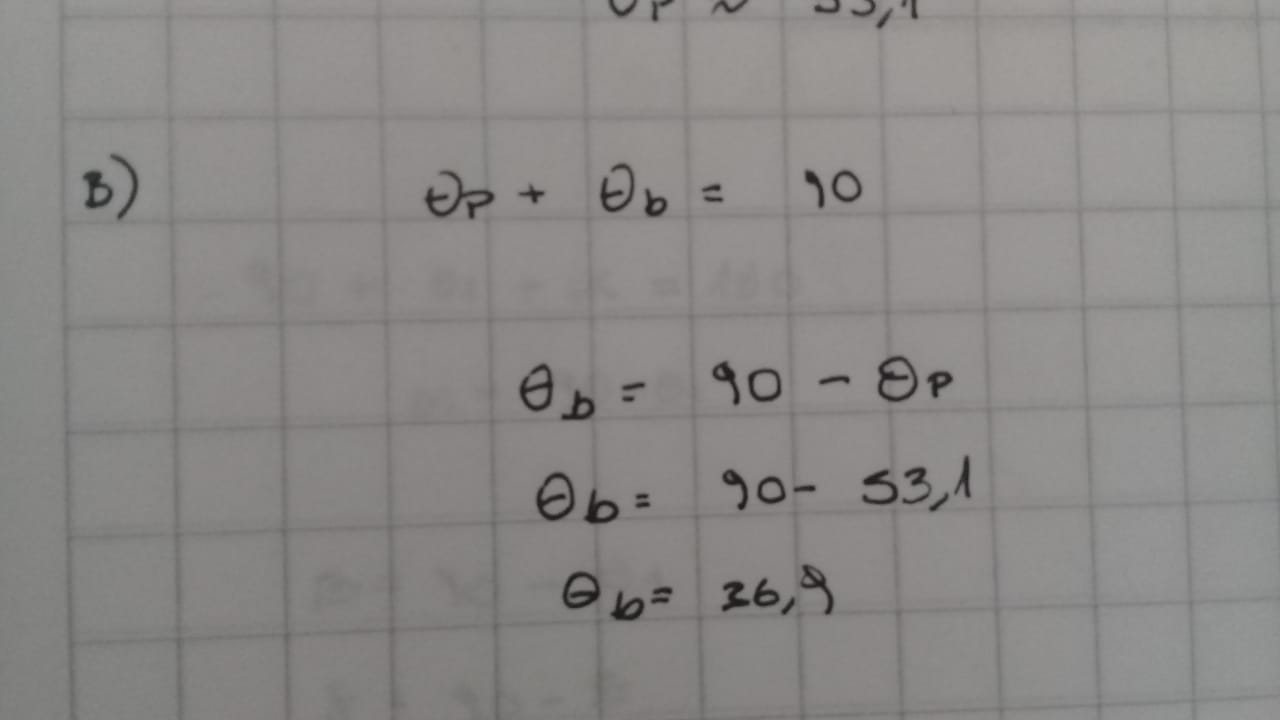 θp ~ 53,1
B) θp + θb = 90
θb = 90 - θp
θb = 90 - 53,1
θb = 36,9